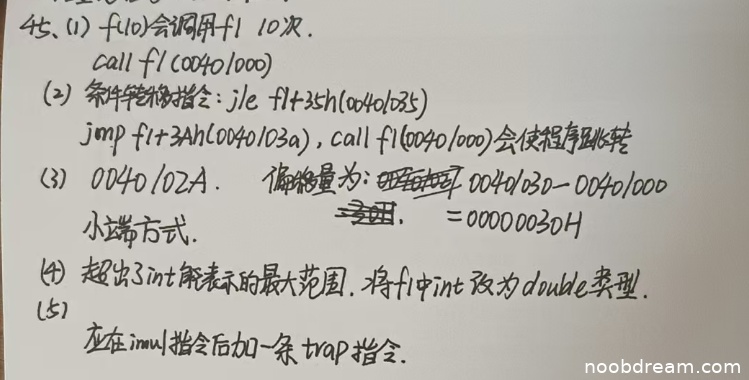 45、(1) f(10)会调用f1 10次.
call f1(00401000)
(2) 条件转移指令:jle f1+35h(00401035)
jmp f1+3Ah(0040103a), call f1(00401000)会使程序跳转
(3) 0040102A. 偏移量为: 00401030-00401000
小端方式. =00000030H
(4) 超出了int能表示的最大范围.将f1中int改为double类型.
(5)
应在imul指令后加一条trap指令.
noobdream.com